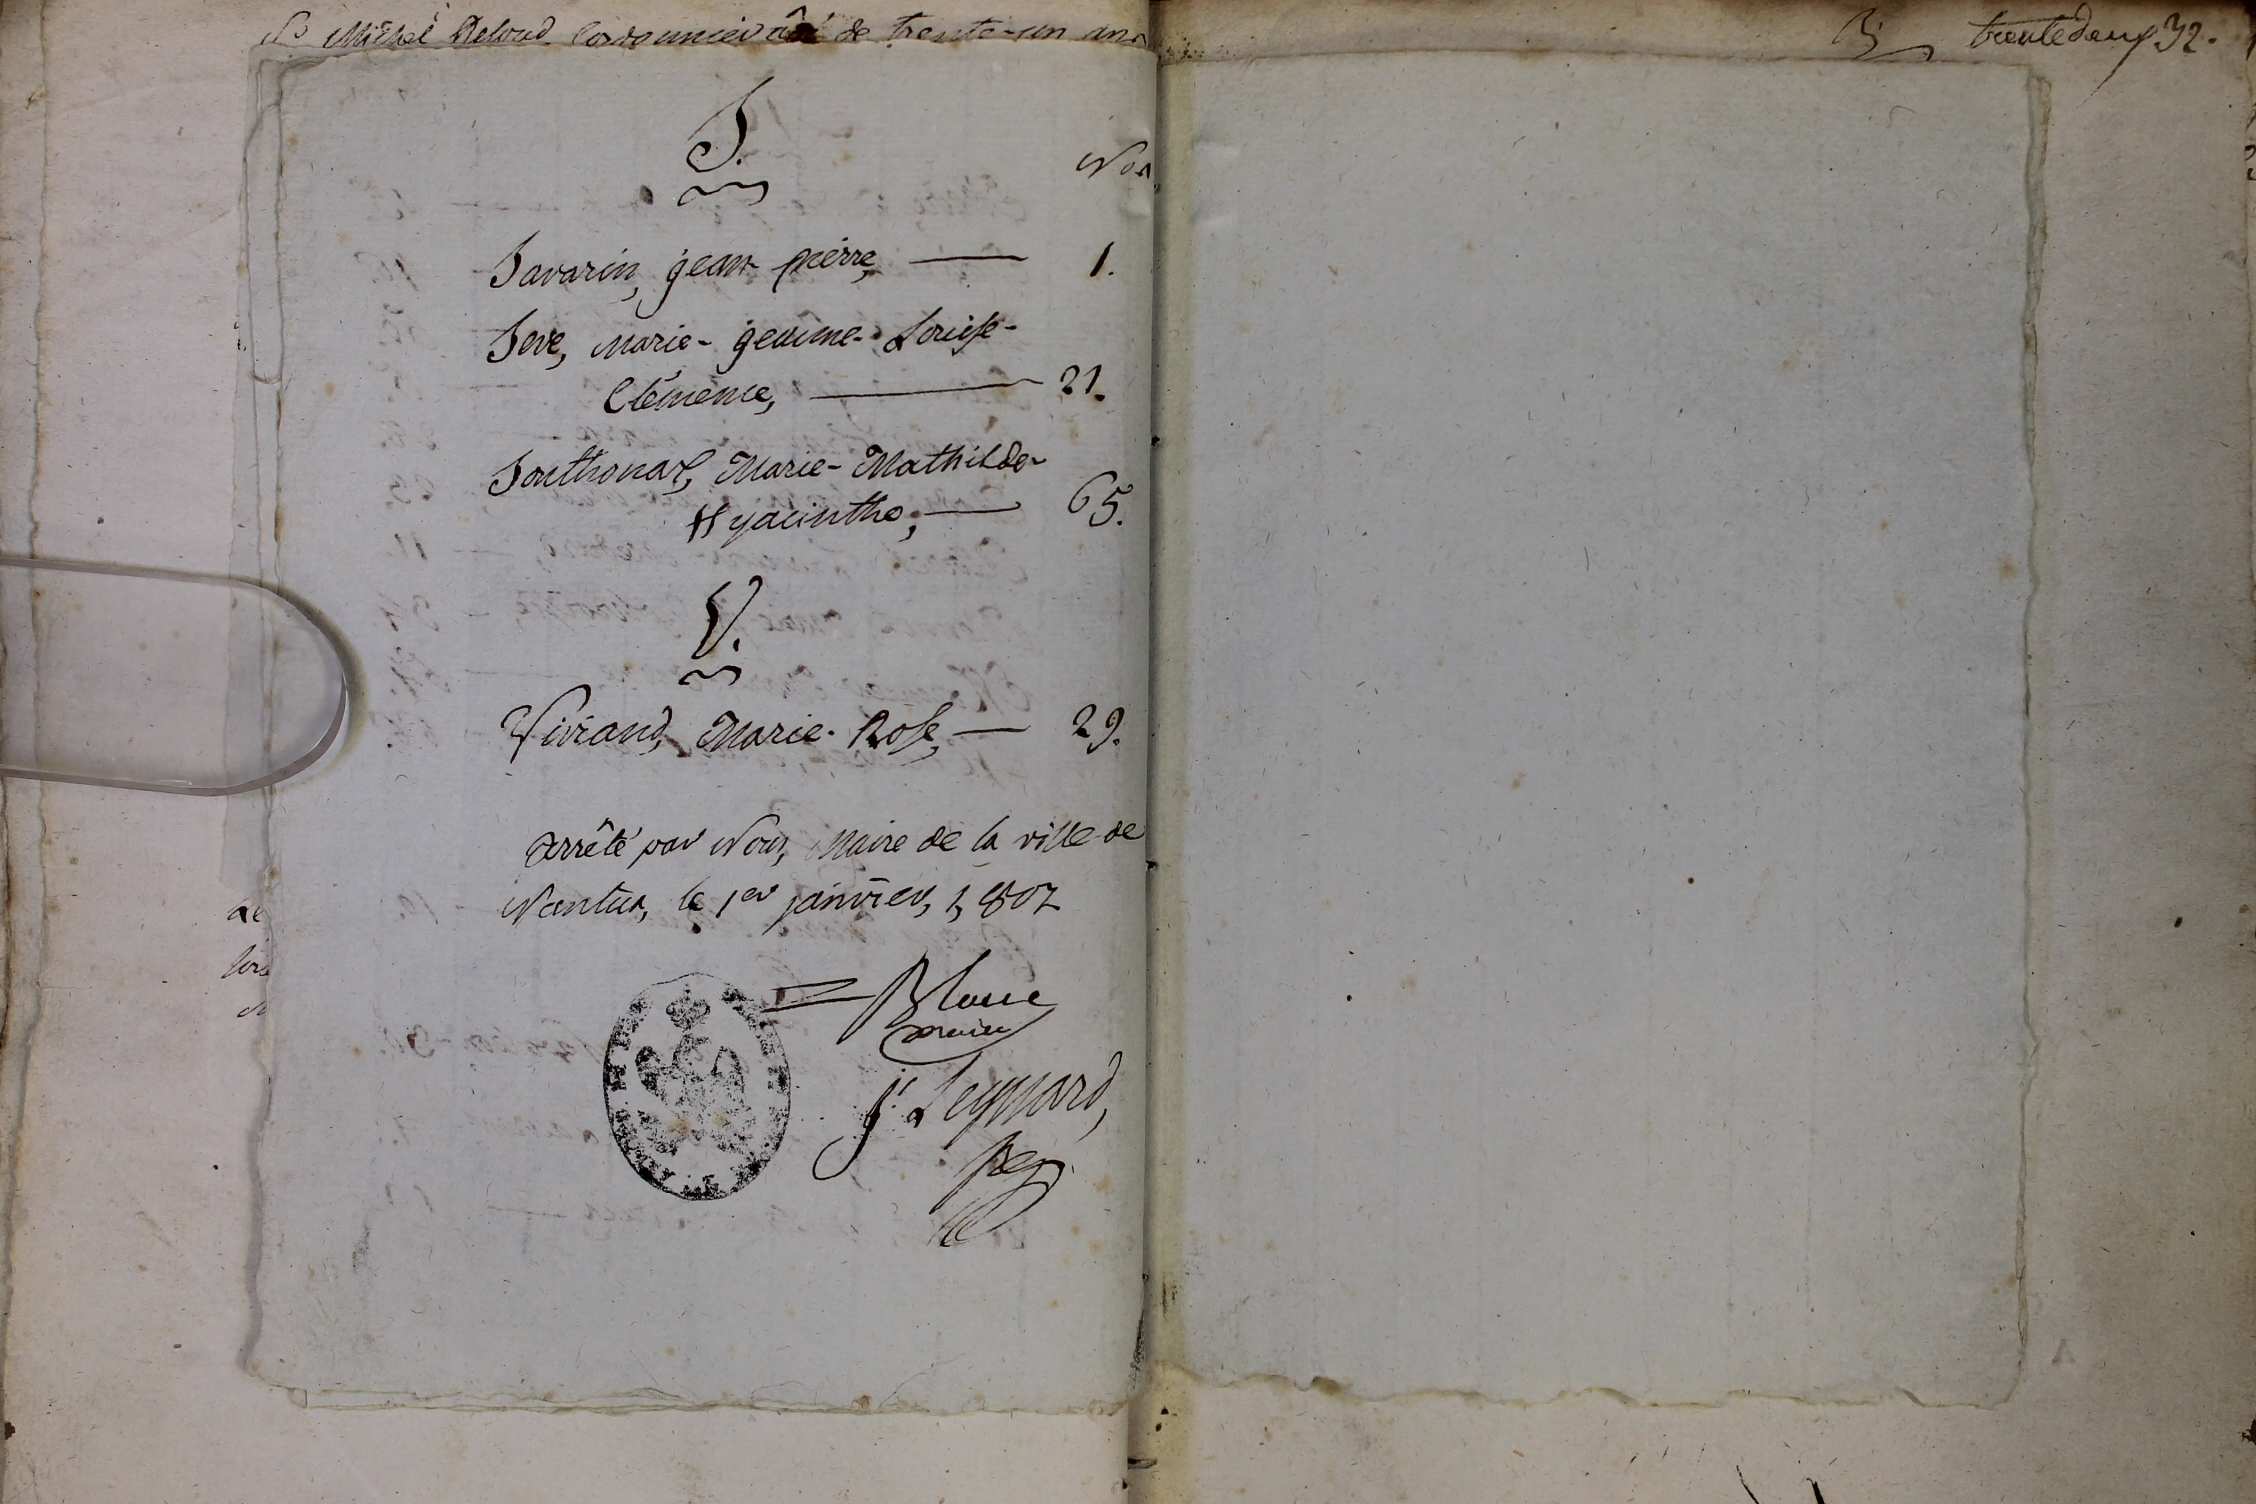 Michel Reloud Cordonnier âgé de trente-un ans
trente deux 32.
S.
Nos
Savarin, jean pierre, 1.
Seve, Marie-jeanne-Louise-
Clémence, 21.
Sonthonax, Marie-Mathilde-
Hyacinthe, 65.
V.
Viviand, Marie-Rose, 29.
arrêté par Nous, Maire de la ville de
Nantua, le 1er janvier, 1,807
Blanc
maire